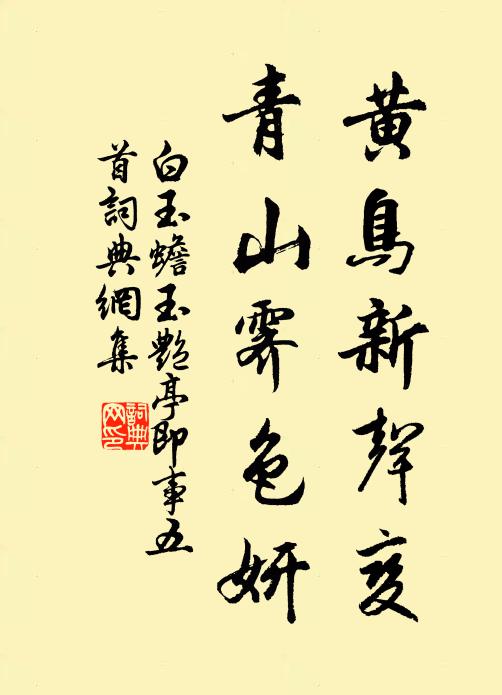 黄鳥新聲变
青山霁色妍
白玉蟾玉艷亭即事五
首詞典網集
詞典
网印